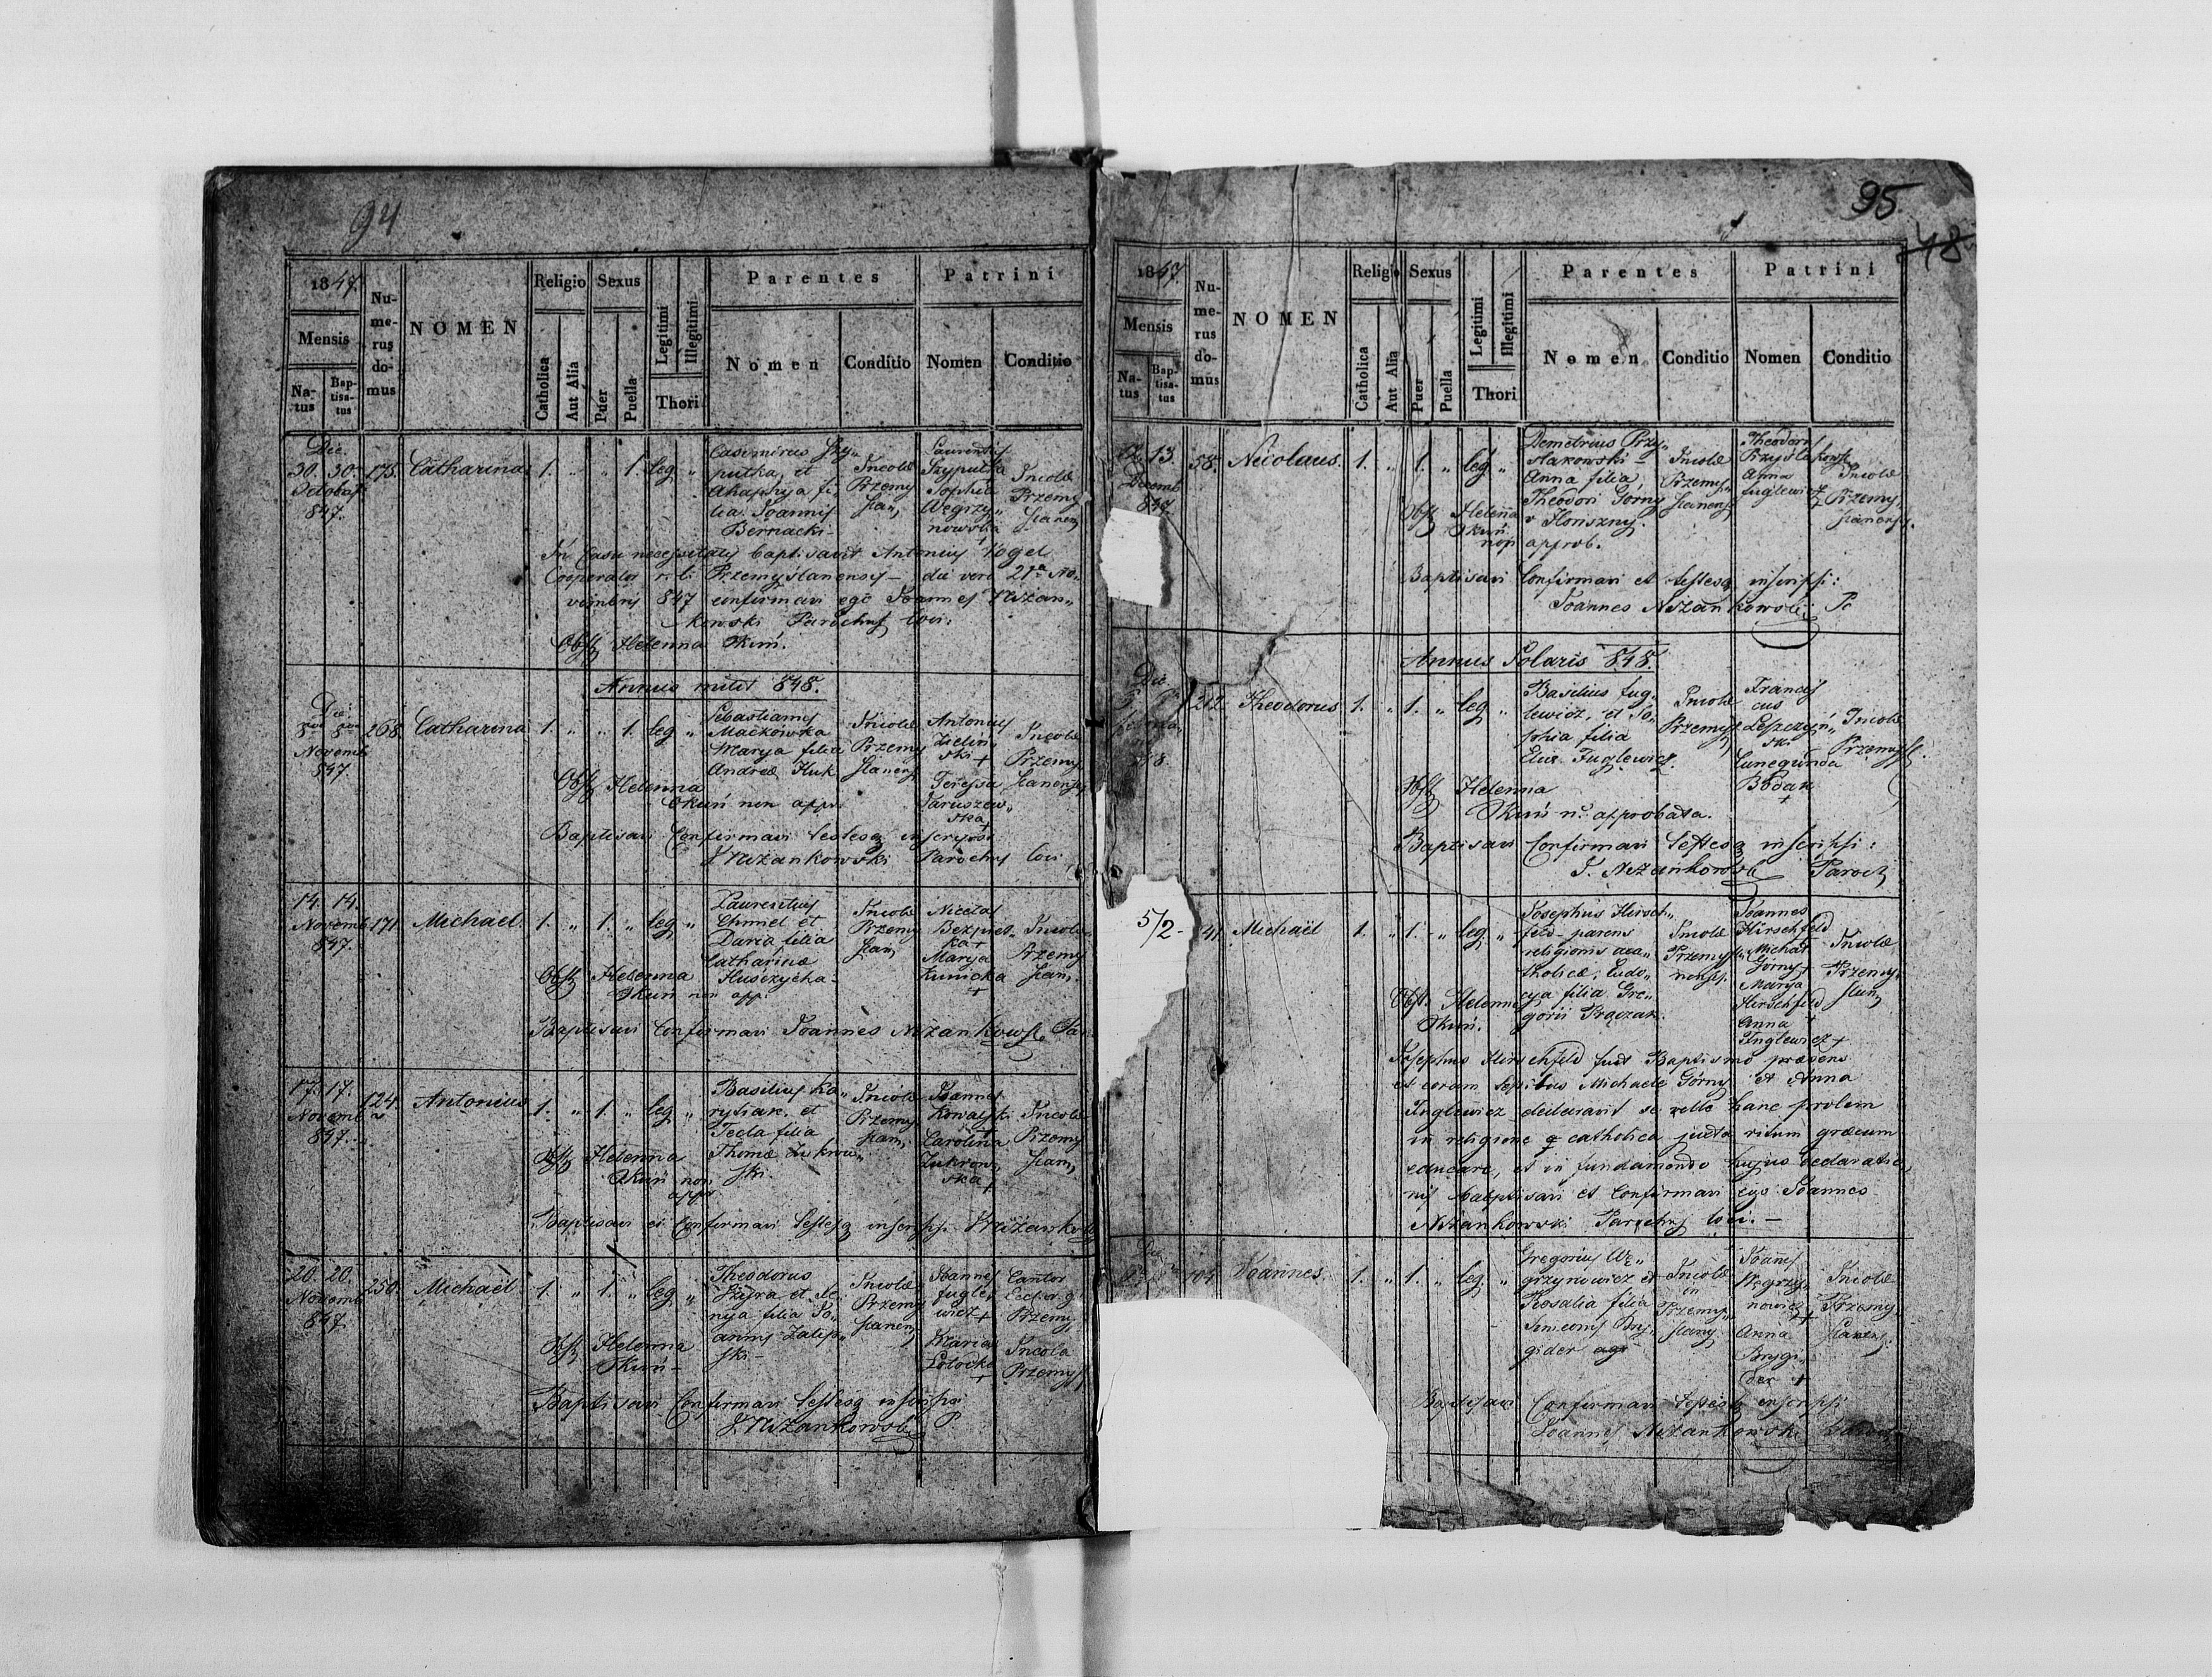 94
1847.
Mensis
Na-
tus
Bap-
tisa-
tus
Nu-
me-
rus
do-
mus
NOMEN
Religio
Catholica
Aut Alia
Sexus
Puer
Puella
Legitimi
Illegitimi
Thori
Parentes
Nomen
Conditio
Patrini
Nomen
Conditio
Die
30. 30. 175. Catharina 1. " " 1. leg "
847.
Casimirus Szy„
putka, et
lia Joannis
Bernacki
Incolæ
Przemy
slan,
Szyputka
Sophia
Węgrzy„
nowska
Incolæ
Przemy
slanen,
In Casu necessitatis baptisavit Antonius Vogel
Cooperator r. l. Przemyslanensis – die vero 21a No„
vembris 847 confirmavi ego Joannes Niżan„
kowski Parochus loci.
Obst Helenna Okuń.
Annus milit 848.
Die
268. Catharina 1. " " 1. leg "
Novemb
847.
Sebastianus
Maćkowska
Marya filia
Andreæ Huk
Incolæ
Przemy
slanen,
Antonius
Zieliń„
ski +
Teressa
Taruszew„
ska
Incolæ
Przemy
slanens,
Obst Helenna
Okuń non appr.
Baptisavi Confirmavi testesq inscripsi
J Niżankowski Parochus loci
14. 14. 171 Michael. 1. " 1. " leg "
Novemb
847.
Laurentius
Chmiel et
Daria filia
Catharinæ
Huśczycha
Incolæ
Przemy
slan,
Nicetas
Bezpal„
ka +
Marya
Kunicka
+
Incolæ
Przemy
slan.
Obst Helenna
Okuń non app:
Baptisavi Confirmavi Joannes Niżankowsk Par
17. 17. 124. Antonius 1. " 1. " leg "
Novemb
847.
Basilius Ka„
rytiak. et
Tecla filia
Thomæ Zukrow„
ski.
Incolæ
Przemy
slan,
Joannes
Kowalski
Carolina
Zukrow„
ska +
Incolæ
Przemy
slan,
Obst Helenna
Okuń non
appr
Baptisavi et Confirmavi testesq inscrips. Niżankowsk
20. 20. 250. Michael 1. " 1. " leg "
Novemb
847.
Theodorus
nya filia Jo„
annis Zalip„
ski –
Incolæ
Przemy
slanen,
Joannes
Fugle„
wicz +
Maria
+
Cantor
Przemy,
Incola
Przemys
Obst Helenna
Okuń –
Baptisavi Confirmavi testesq inscripsi
J. Niżankowski P
95
48
1847.
Mensis
Na-
tus
Bap-
tisa-
tus
Nu-
me-
rus
do-
mus
NOMEN
Religio
Catholica
Aut Alia
Sexus
Puer
Puella
Legitimi
Illegitimi
Thori
Parentes
Nomen
Conditio
Patrini
Nomen
Conditio
13. 58. Nicolaus. 1. " 1. " leg "
Decemb
847
Demetrius Przy„
słakowski –
Anna filia
Theodori Górny
Incolæ
Przemy„
slanens,
Theodorus
Przysłakowsk
Anna
Fuglewicz
Incolæ
Przemy,
slanens.
Obst Helena
Okuń
non approb.
Baptisavi Confirmavi et testesq inscripsi:
Joannes Niżankowski Pc
Annus Solaris 848.
Die
212. Theodorus 1. " 1. " leg "
Basilius Fug„
lewicz, et So„
phia filia
Eliæ Fuglewicz.
Incolæ
Przemysl,
Francis
cus
Leszczyń„
ski
Cunegunda
Bodak
+
Incolæ
Przemysl.
Obst Helenna
Okuń n. approbata.
Baptisavi Confirmavi testesq inscripsi:
J. Niżankowsk Paroch
5/2 - 41. Michaël 1. " 1. " leg "
Josephus Hirsch„
feld – parens
religionis aca„
tholicæ, Ludo„
vya filia Gre„
gorii Prączak.
Incolæ
Przemysla„
nenses.
Joannes
Hirschfeld
Michał
Górny +
Marya
Hirschfeld
Anna
Fuglewicz +
Incolæ
Przemy,
slan,
Obst. Helenna
Okuń.
Josephus Hirschfeld fuit Baptismo præsens
et coram testibus Michaele Górny et Anna
Fuglewicz declaravit se velle hanc prolem
in religione catholica juxta ritum græcum
educare, et in fundamento hujus declaratio„
nis baptisavi et confirmavi ego Joannes
Niżankowski Parochus loci. –
Die
104. Joannes. 1. " 1. " leg "
Gregorius Wę„
grzynowicz et
Rosalia filia
Simeonis Bry„
gider
Incolæ
in
Przemy„
slany
Joannes
Węgrzy„
nowicz
+
Anna
Brygi„
der +
Incolæ
Przemy,
slanens.
Baptisavi Confirmavi testesq inscripsi
Joannes Niżankowski Paroch